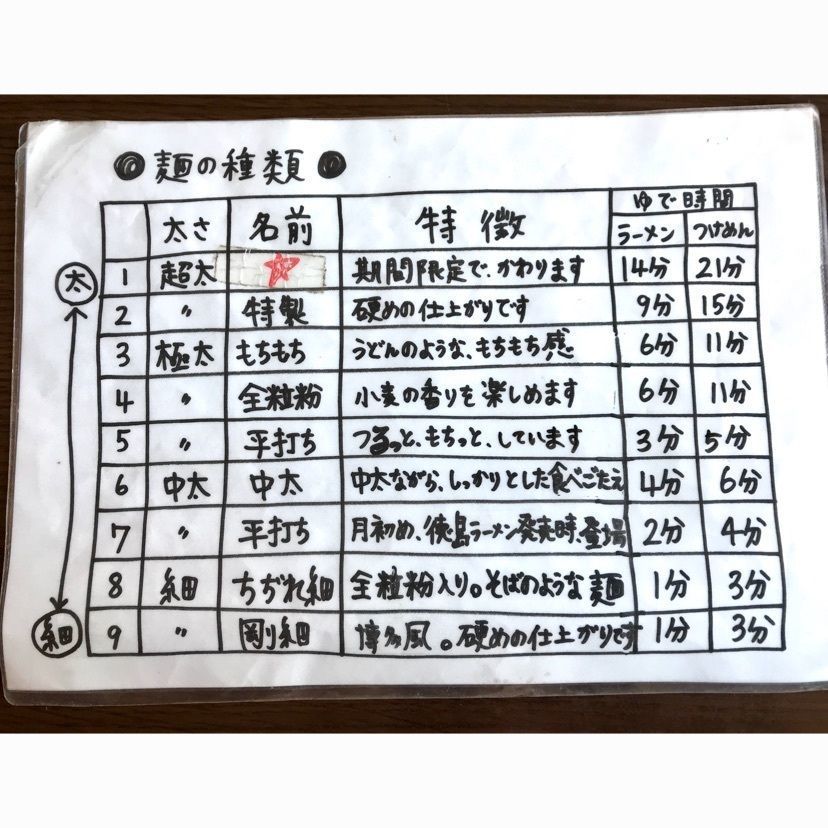 麺の種類
ゆで時間
太さ 名前 特徴 ラーメン つけめん
太
1 超太 期間限定で、かわります 14分 21分
2 〃 特製 硬めの仕上がりです 9分 15分
3 極太 もちもち うどんのような、もちもち感 6分 11分
4 〃 全粒粉 小麦の香りを楽しめます 6分 11分
5 〃 平打ち つるっと、もちっと、しています 3分 5分
6 中太 中太 中太ながら、しっかりとした食べごたえ 4分 6分
7 〃 平打ち 月初め、徳島ラーメン発売時、登場 2分 4分
8 細 ちぢれ細 全粒粉入り。そばのような麺 1分 3分
細
9 〃 剛細 博多風。硬めの仕上がりです 1分 3分